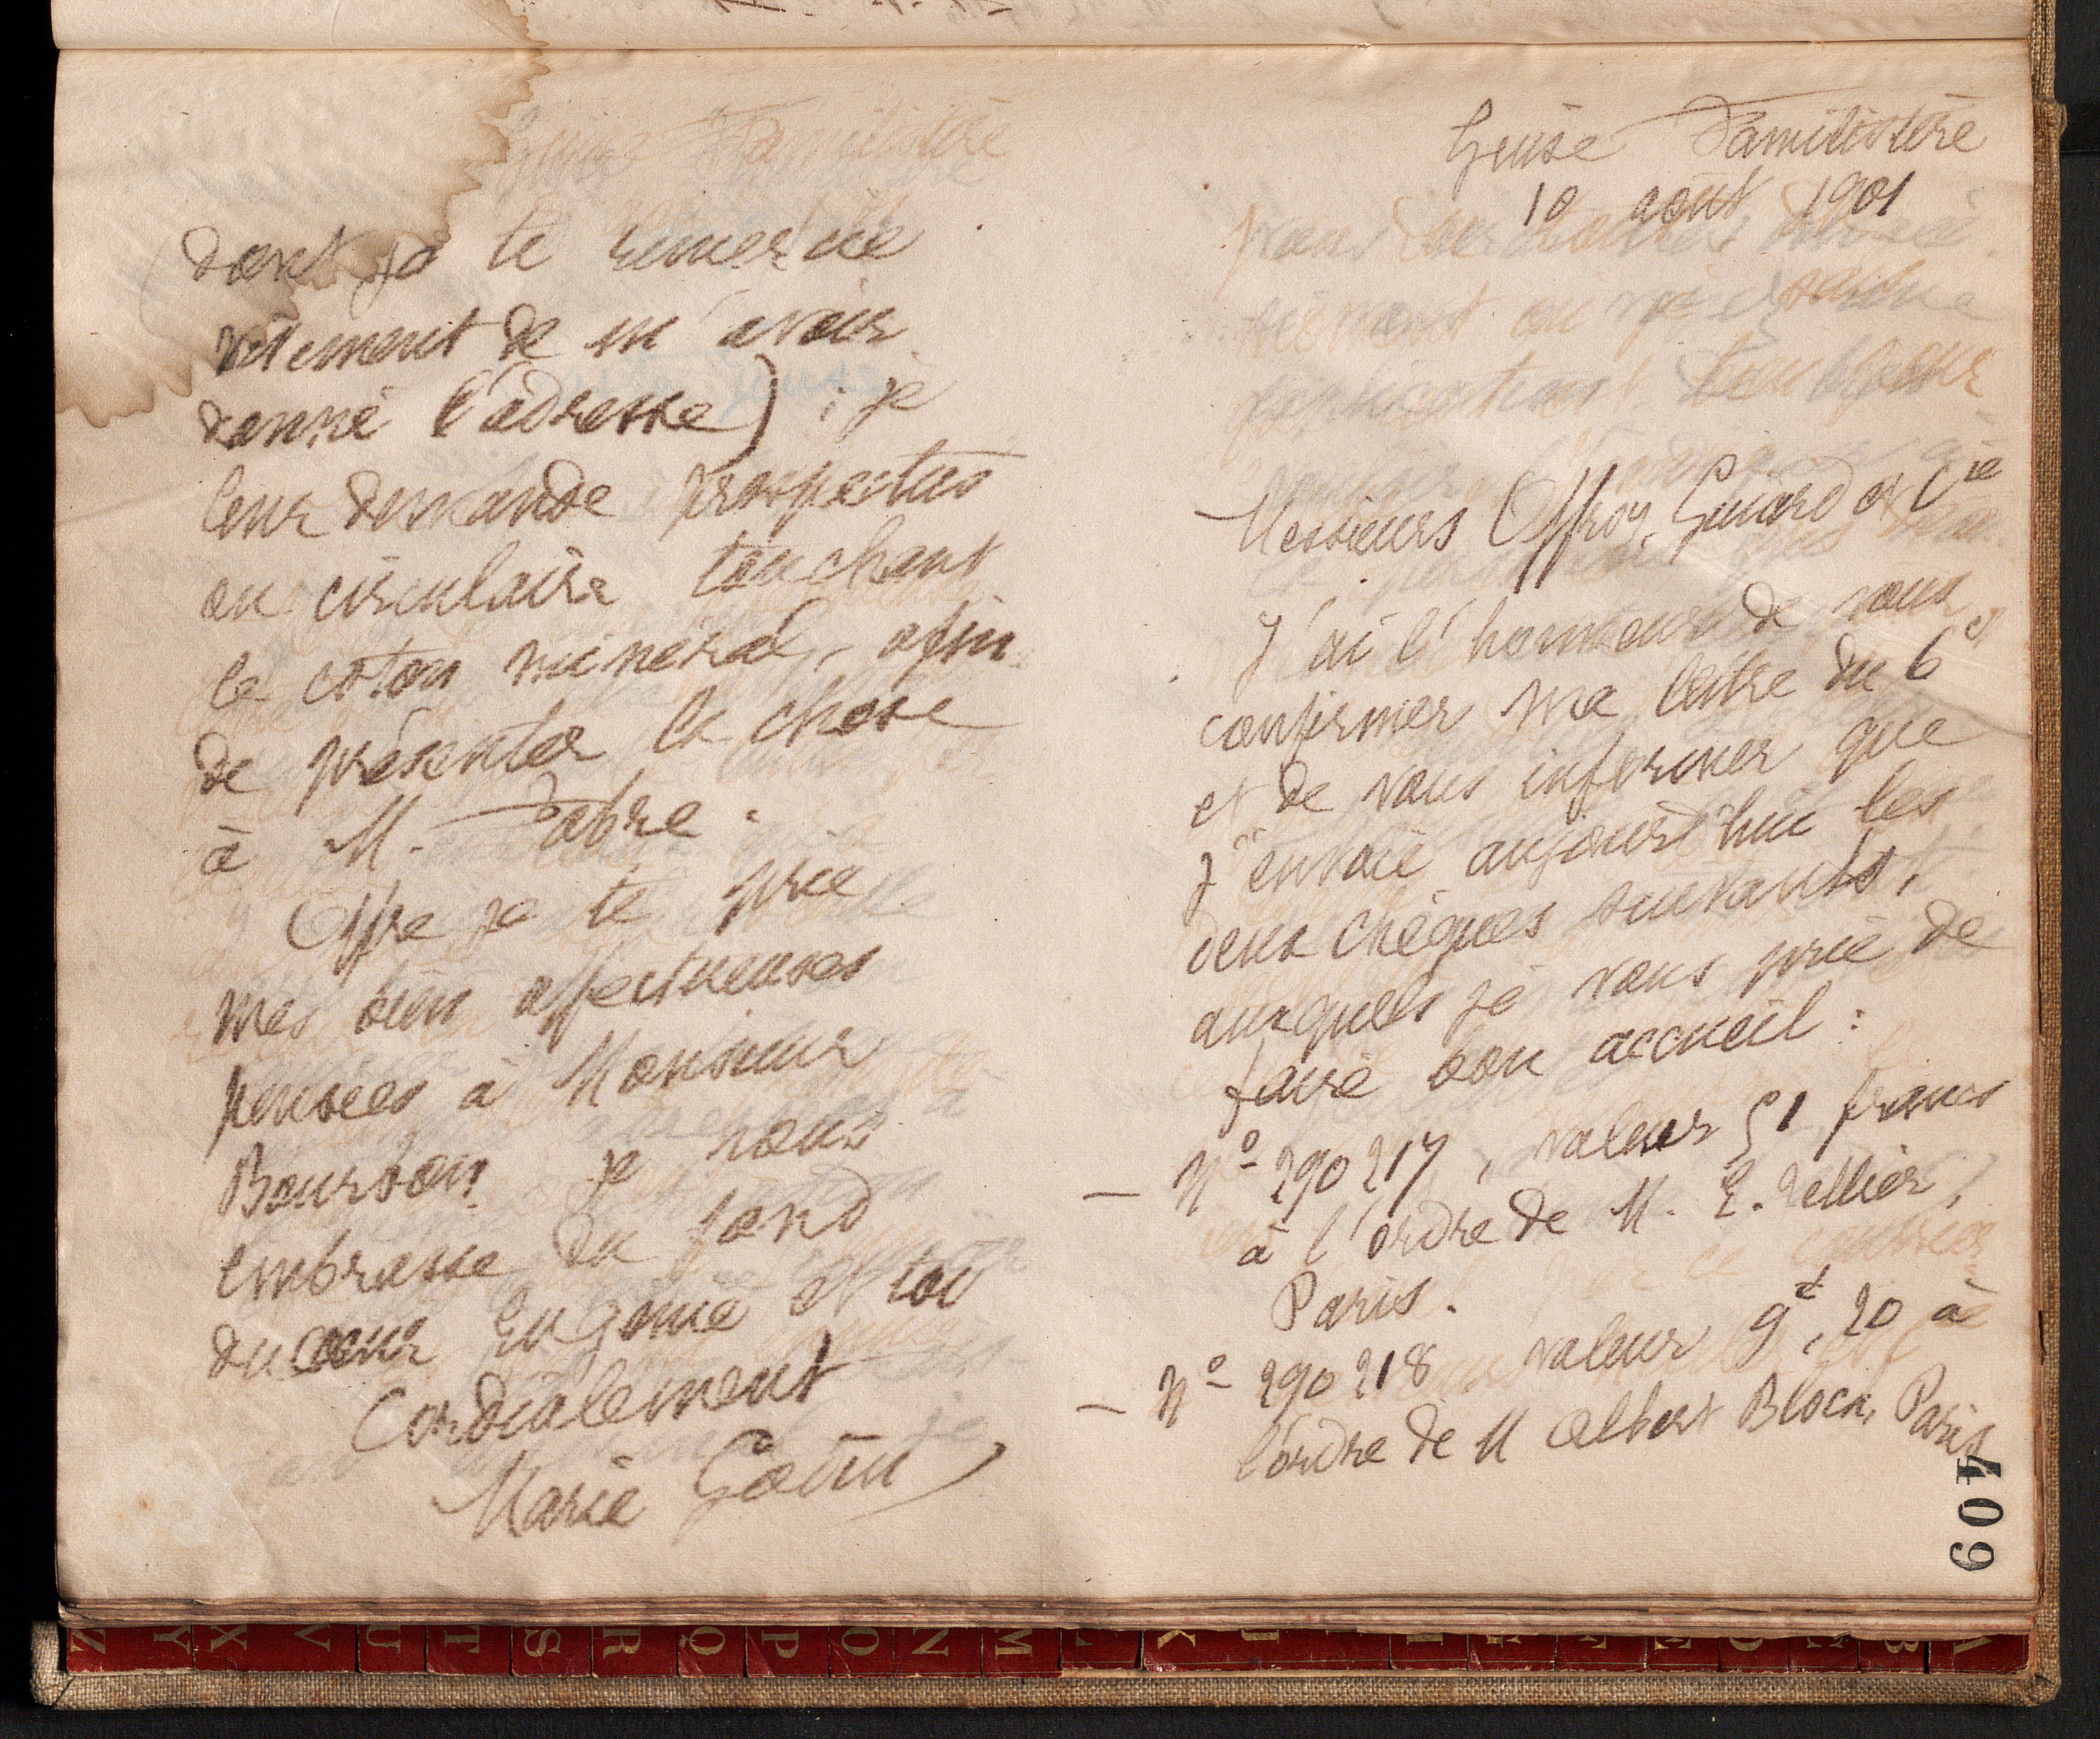 (dont je te remercie
vivement de m'avoir
donné l'adresse) ; je
leur demande prospectus
ou circulaire touchant
le coton minéral, afin
de présenter la chose
à M. Fabre.
Offre je te prie
mes bien affectueuses
pensées à Monsieur
Bourson je vous
embrasse du fond
du cœur Eugénie et toi
Cordialement
Marie Godin
Guise Familistère
10 août 1901
Messieurs Offroy, Guiard et Cie
J'ai l'honneur de vous
confirmer ma lettre du 6 ct
et de vous informer que
j'envoie aujourd'hui les
deux chèques suivants,
auxquels je vous prie de
faire bon accueil :
— No 290 217, valeur 51 francs
à l'ordre de M. E. Tellier,
Paris.
— No 290 218 valeur 9f, 20 à
l'ordre de M Albert Bloch, Paris
409
Z Y X V U T S R Q P O N M L K J I H G F E D C B A